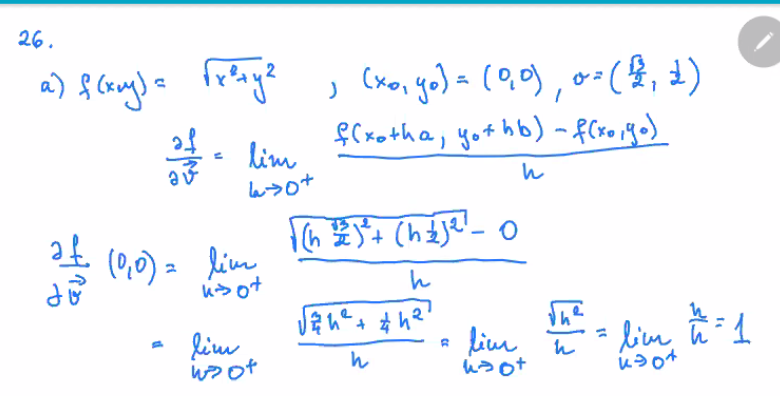 26.
a) f(x,y) = √(x²+y²) , (x₀,y₀) = (0,0) , v=(√3/2, 1/2)
∂f/∂v⃗ = lim h→0⁺ (f(x₀+ha, y₀+hb) - f(x₀,y₀))/h
∂f/∂v⃗ (0,0) = lim h→0⁺ (√((h √3/2)² + (h 1/2)²) - 0)/h
= lim h→0⁺ √(3/4 h² + 1/4 h²)/h = lim h→0⁺ √h²/h = lim h→0⁺ h/h = 1